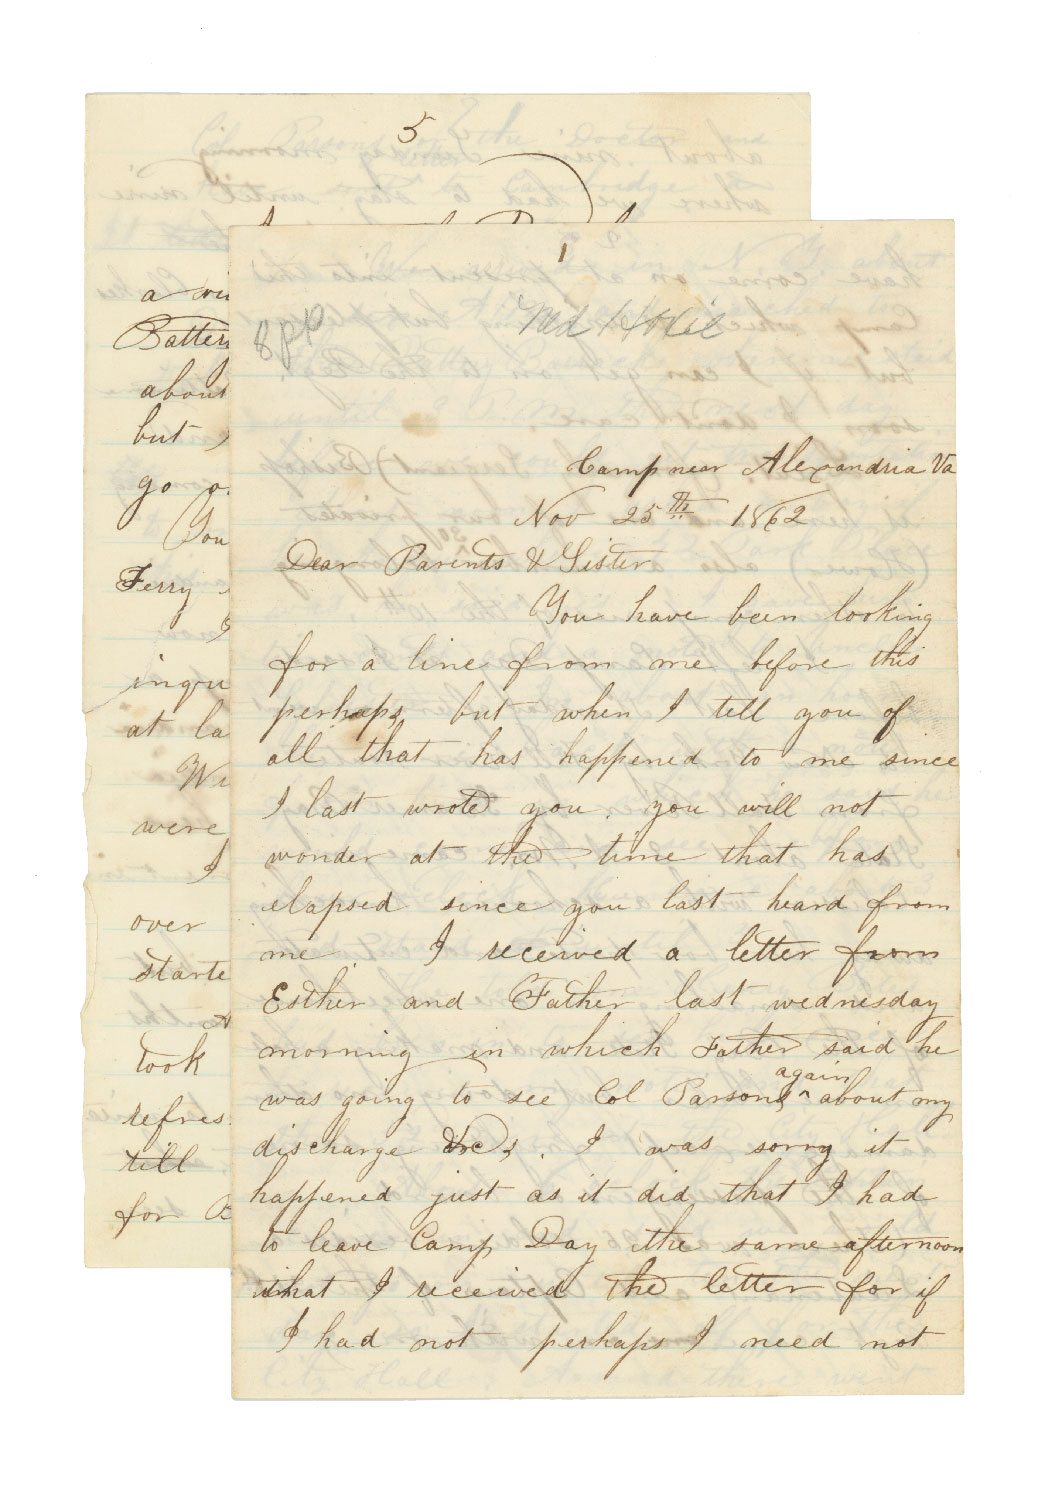 5
a
Batter
about
but
go o
You
Ferry
I
inqu
at la
We
were
I
over
starte
took
refres
till
for B
1
8 pp
Camp near Alexandria Va
Nov 25th 1862
Dear Parents & Sister
You have been looking
for a line from me before this
perhaps, but when I tell you of
all that has happened to me since
I last wrote you, you will not
wonder at the time that has
elapsed since you last heard from
me I received a letter from
Esther and Father last wednesday
morning in which Father said he
again
was going to see Col Parsons ^ about my
discharge &c, . I was sorry it
happened just as it did that I had
to leave Camp Day the same afternoon
that I received the letter for if
I had not perhaps I need not